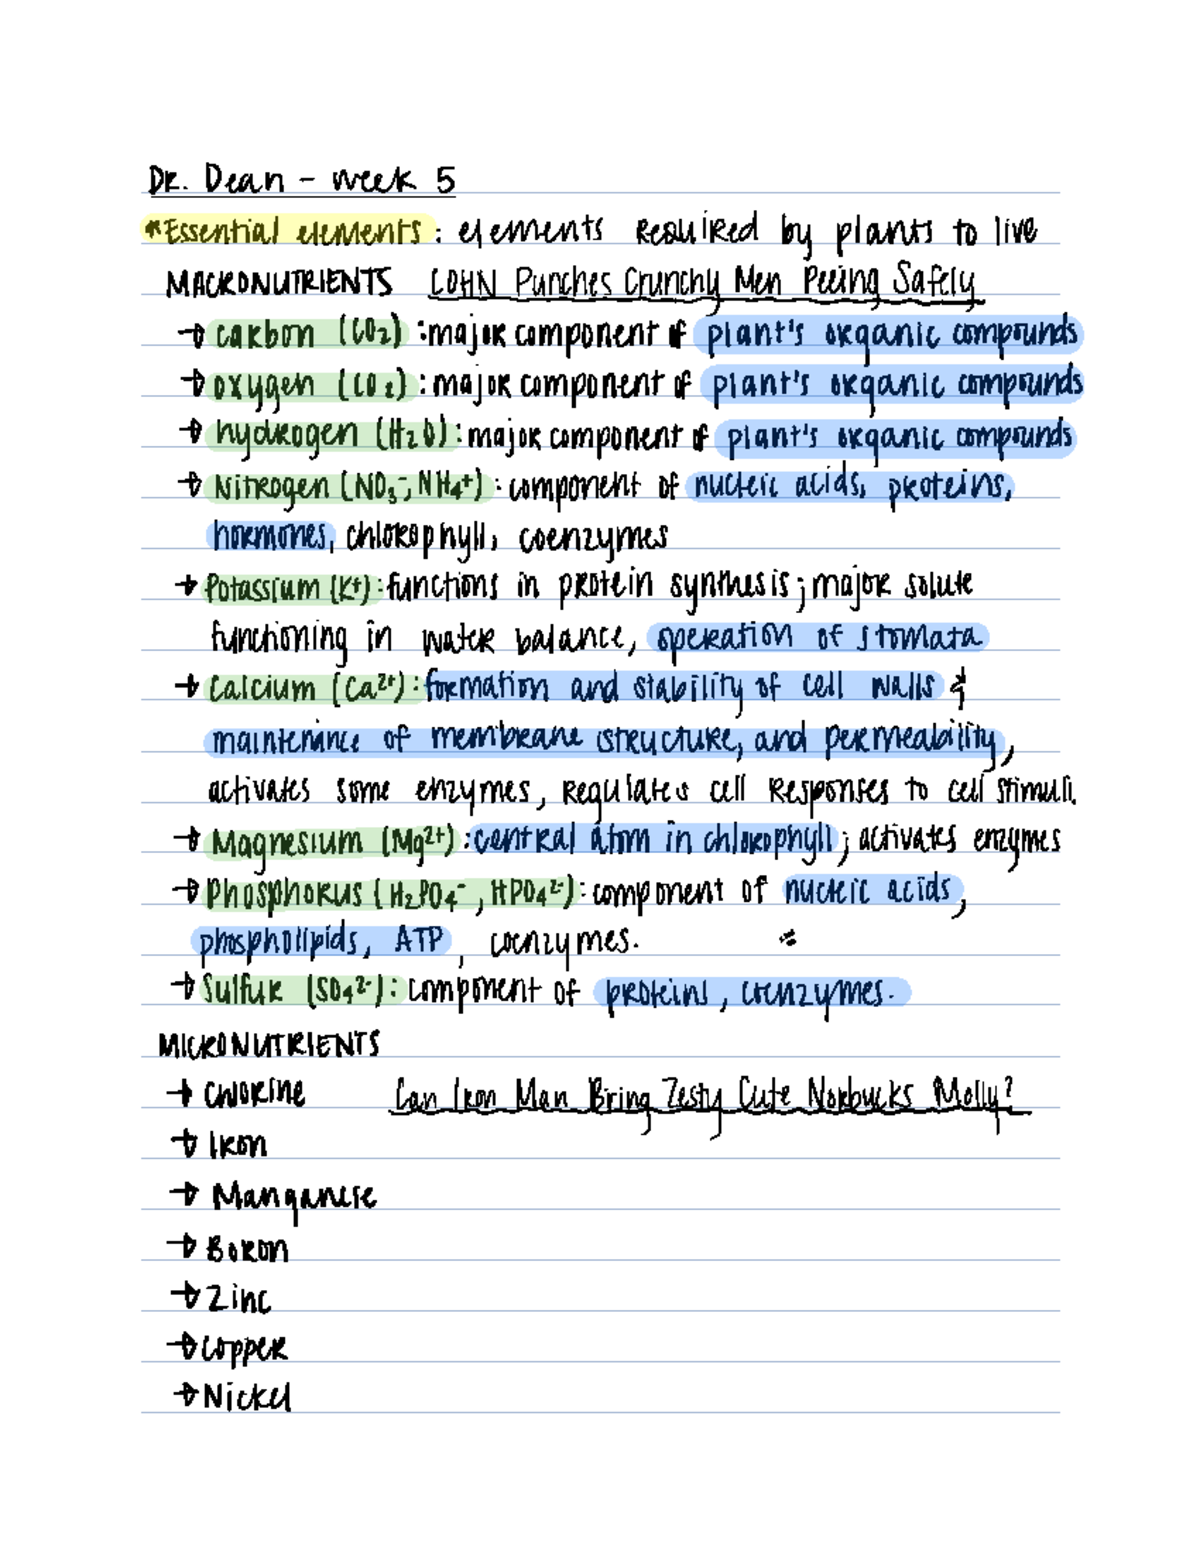 Dr. Dean - Week 5
*Essential elements: elements required by plants to live
MACRONUTRIENTS COHN Punches Crunchy Men Peeing Safely
→ carbon (CO₂) : major component of plant's organic compounds
→ oxygen (CO₂) : major component of plant's organic compounds
→ hydrogen (H₂O) : major component of plant's organic compounds
→ Nitrogen (NO₃⁻, NH₄⁺) : component of nucleic acids, proteins,
hormones, chlorophyll, coenzymes
→ Potassium (K⁺) : functions in protein synthesis; major solute
functioning in water balance, operation of stomata
→ Calcium (Ca²⁺) : formation and stability of cell walls &
maintenance of membrane structure, and permeability,
activates some enzymes, regulates cell responses to cell stimuli.
→ Magnesium (Mg²⁺) : central atom in chlorophyll; activates enzymes
→ Phosphorus (H₂PO₄⁻, HPO₄²⁻) : component of nucleic acids,
phospholipids, ATP, coenzymes.
→ Sulfur (SO₄²⁻) : component of proteins, coenzymes.
MICRONUTRIENTS
→ Chlorine Can Iron Man Bring Zesty Cute Norbucks Molly?
→ Iron
→ Manganese
→ Boron
→ Zinc
→ Copper
→ Nickel